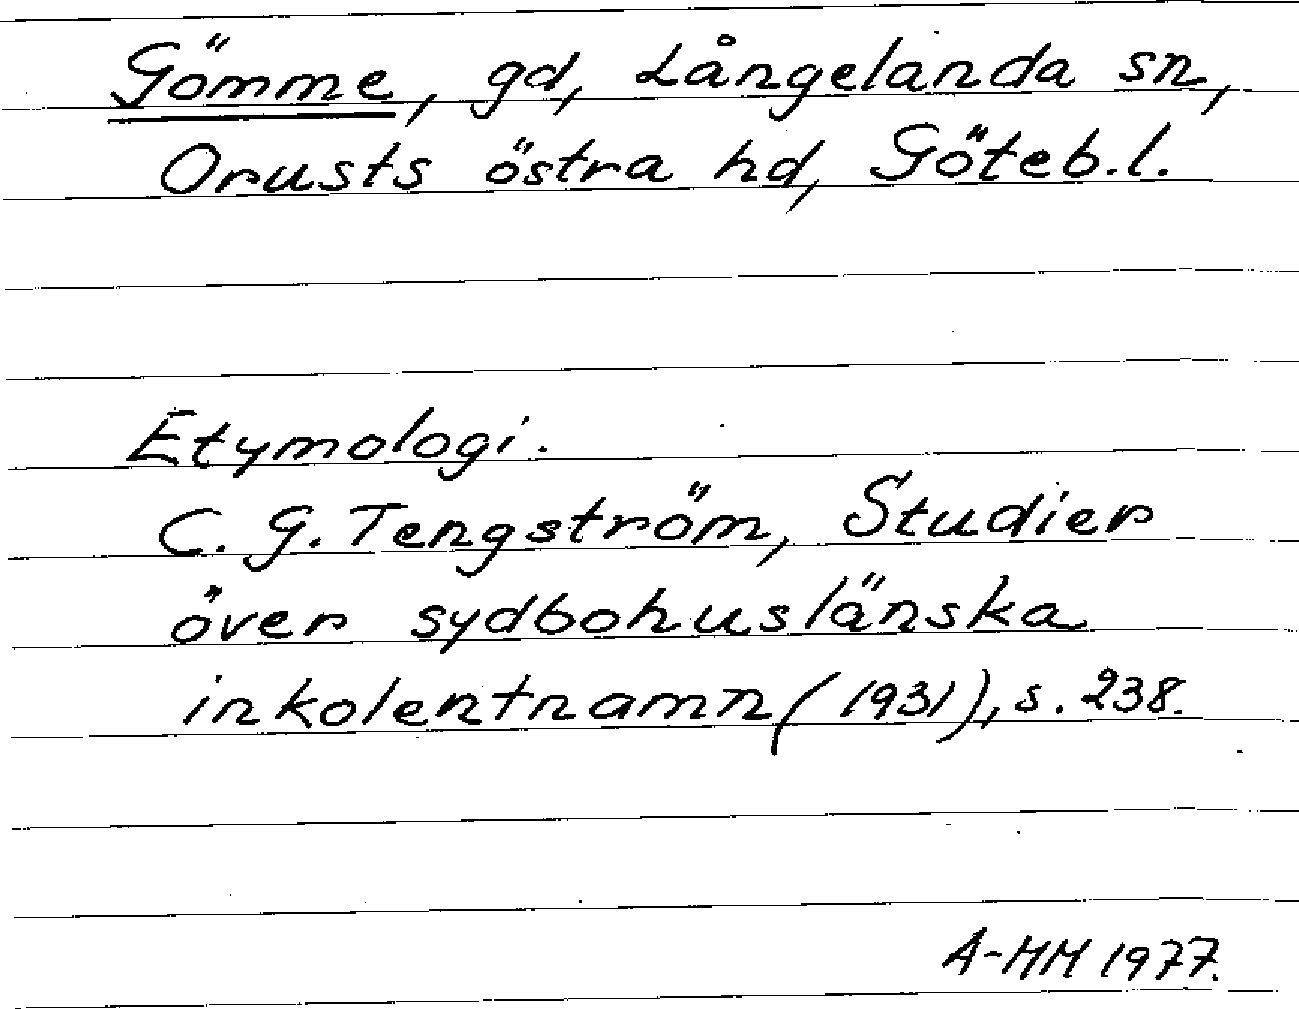 Gömme, gd, Långelanda sn,
Orusts östra hd, Göteb.l.
Etymologi.
C. G. Tengström, Studier
över sydbohuslänska
inkolentnamn (1931), s. 238.
A-MM 1977.